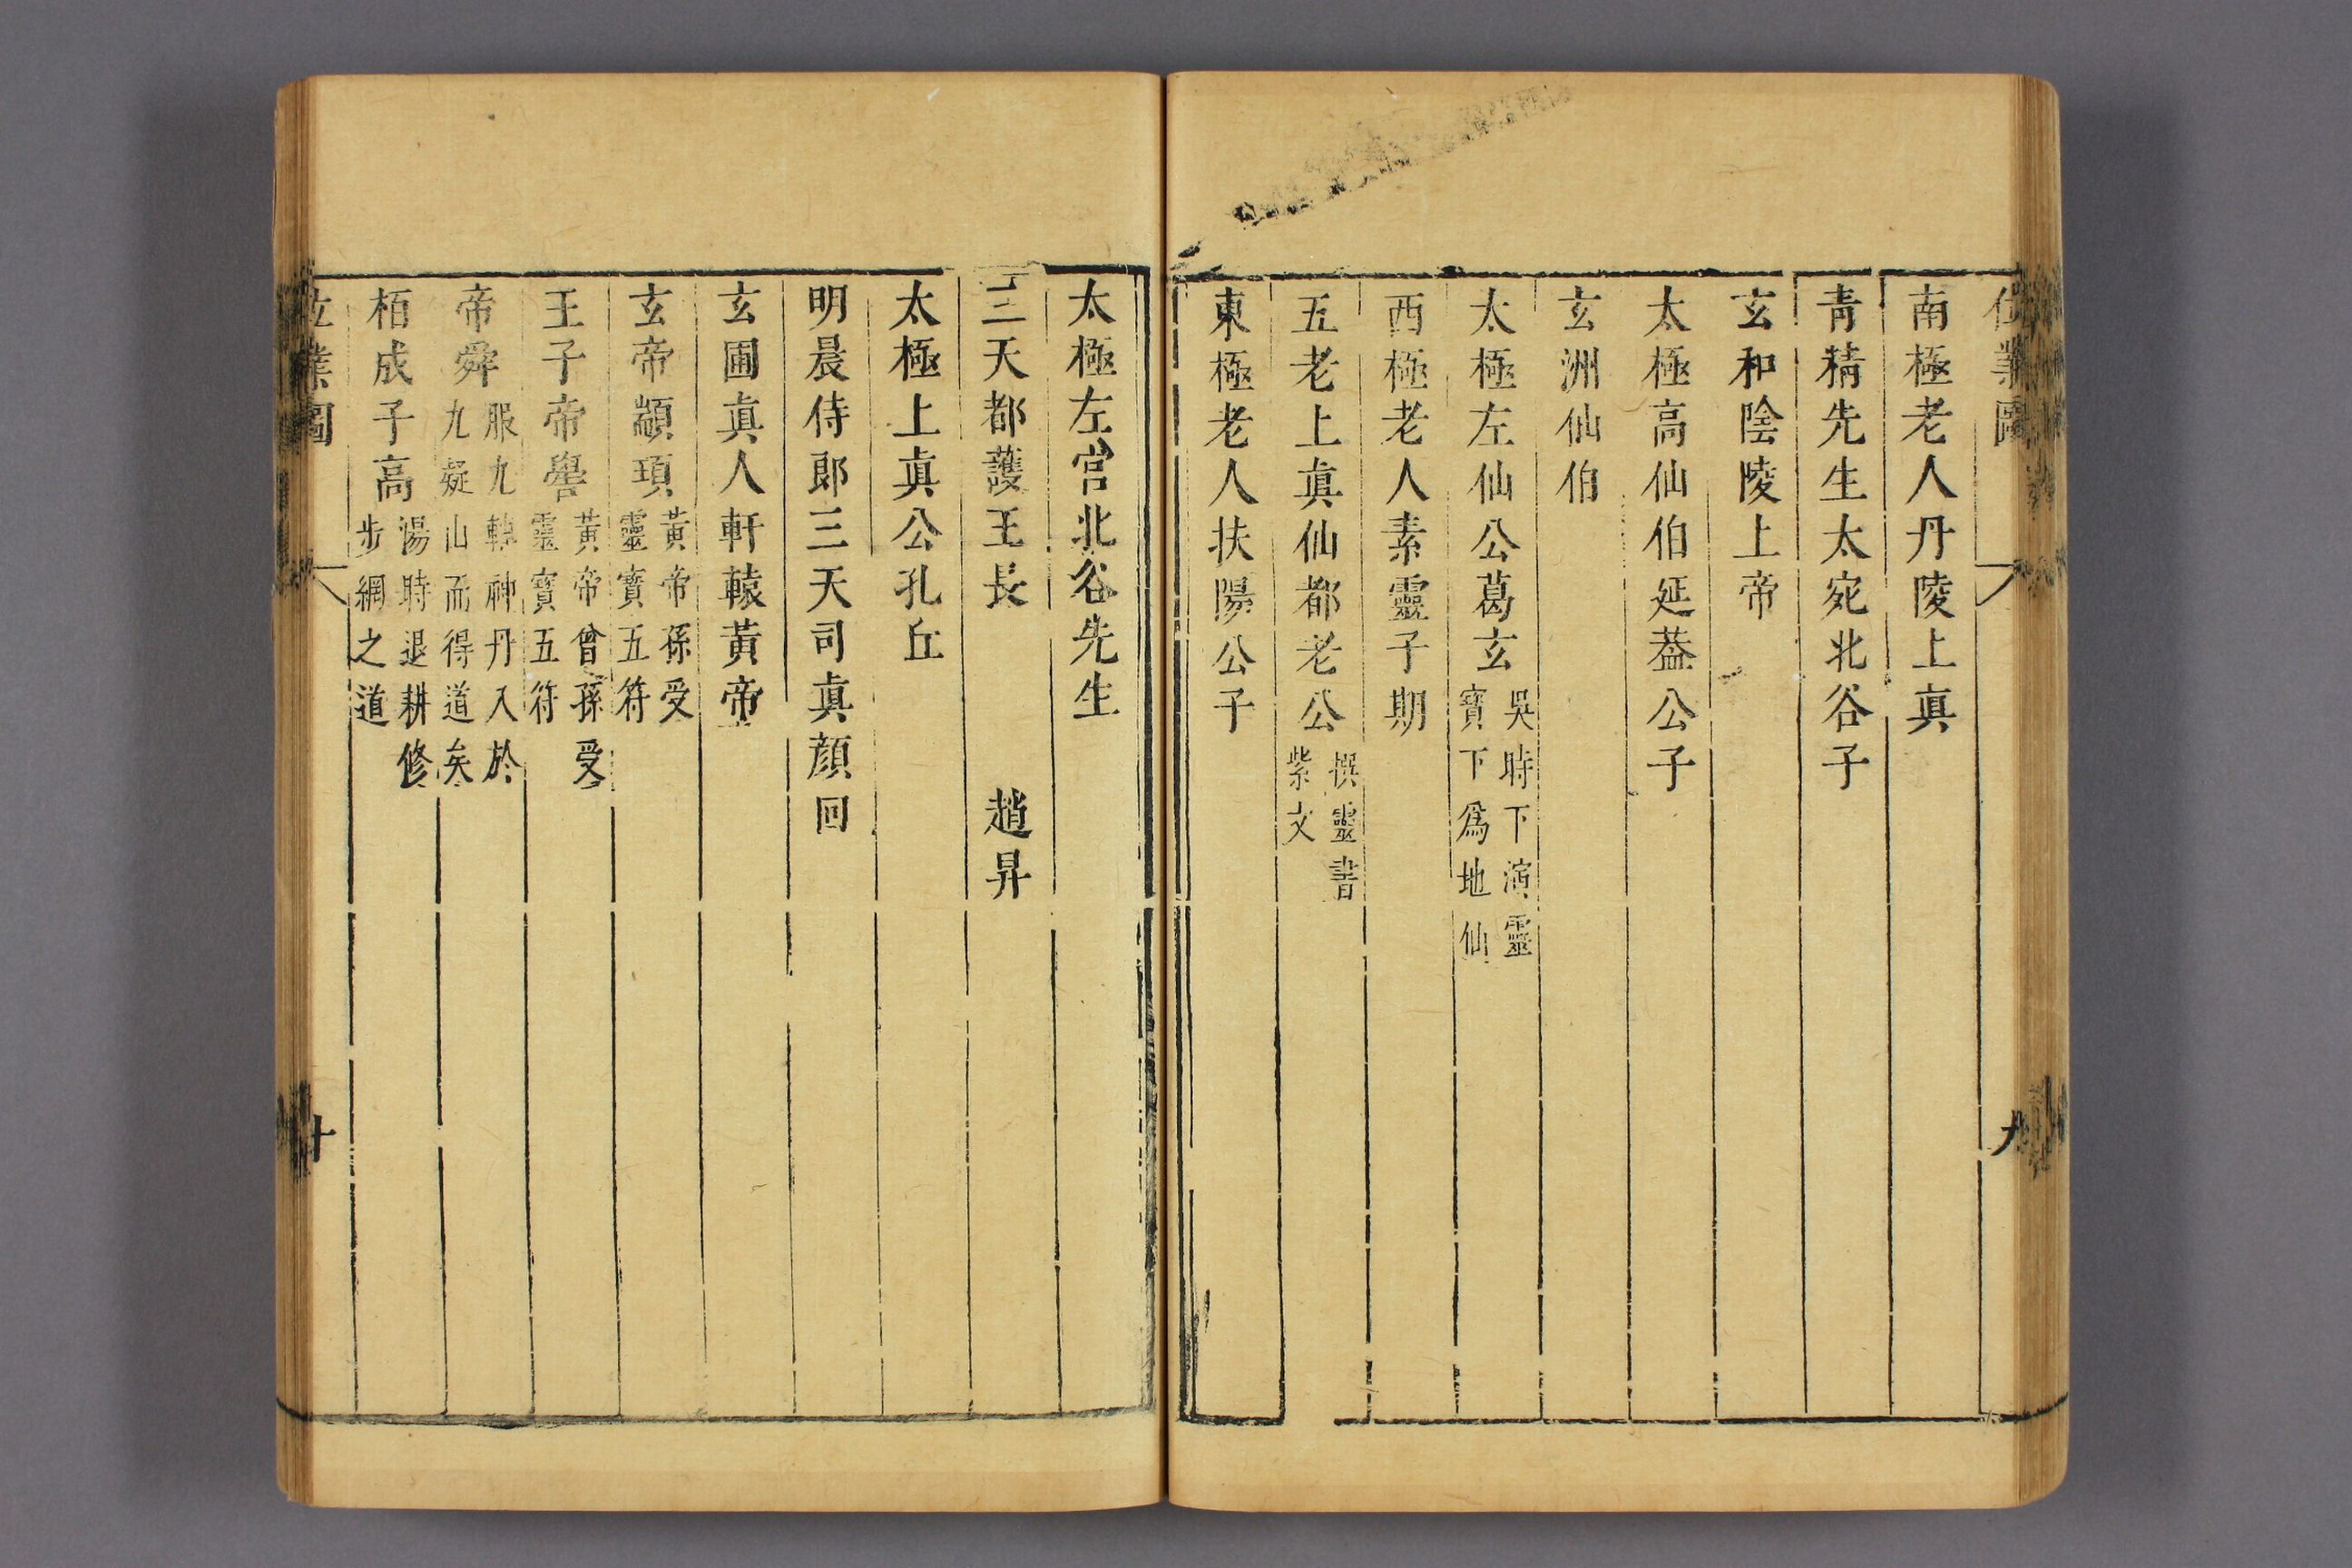 業圖
九
南極老人丹陵上眞
青精先生太宛北谷子
玄和陰陵上帝
太極高仙伯延葢公子
玄洲仙伯
太極左仙公葛玄吳時下演靈寶下爲地仙
西極老人素靈子期
五老上眞仙都老公撰靈書紫文
東極老人扶陽公子
太極左宫北谷先生
三天都護王長　趙昇
太極上眞公孔丘
明晨侍郎三天司眞顔回
玄圃眞人軒轅黃帝
玄帝顓頊黃帝孫受靈寶五符
王子帝嚳黃帝曾孫受靈寶五符
帝舜服九轉神丹入於九疑山而得道矣
栢成子高湯時退耕修步綱之道
業圖
十